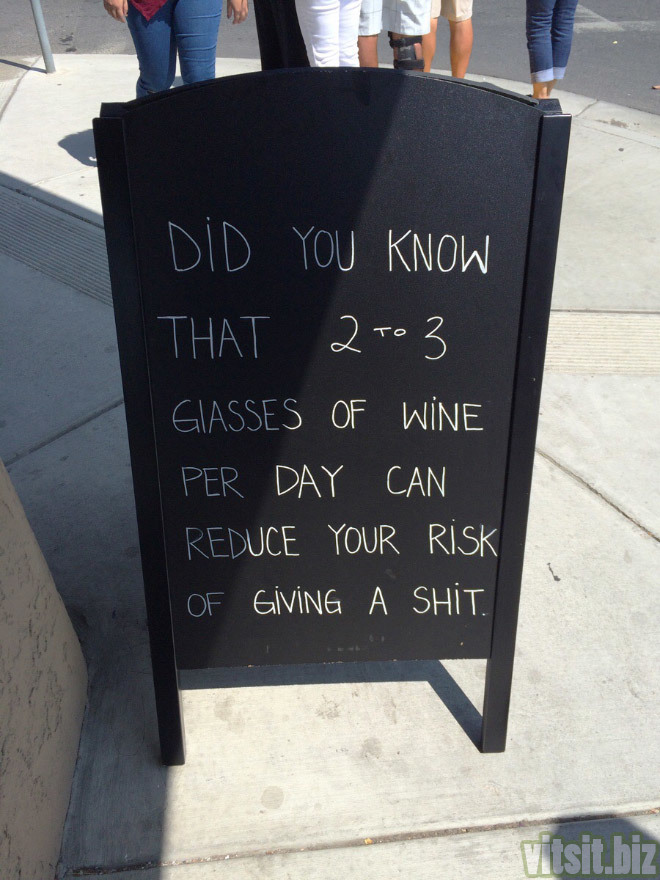 DID YOU KNOW
THAT 2 TO 3
GLASSES OF WINE
PER DAY CAN
REDUCE YOUR RISK
OF GIVING A SHIT.
vitsit.biz